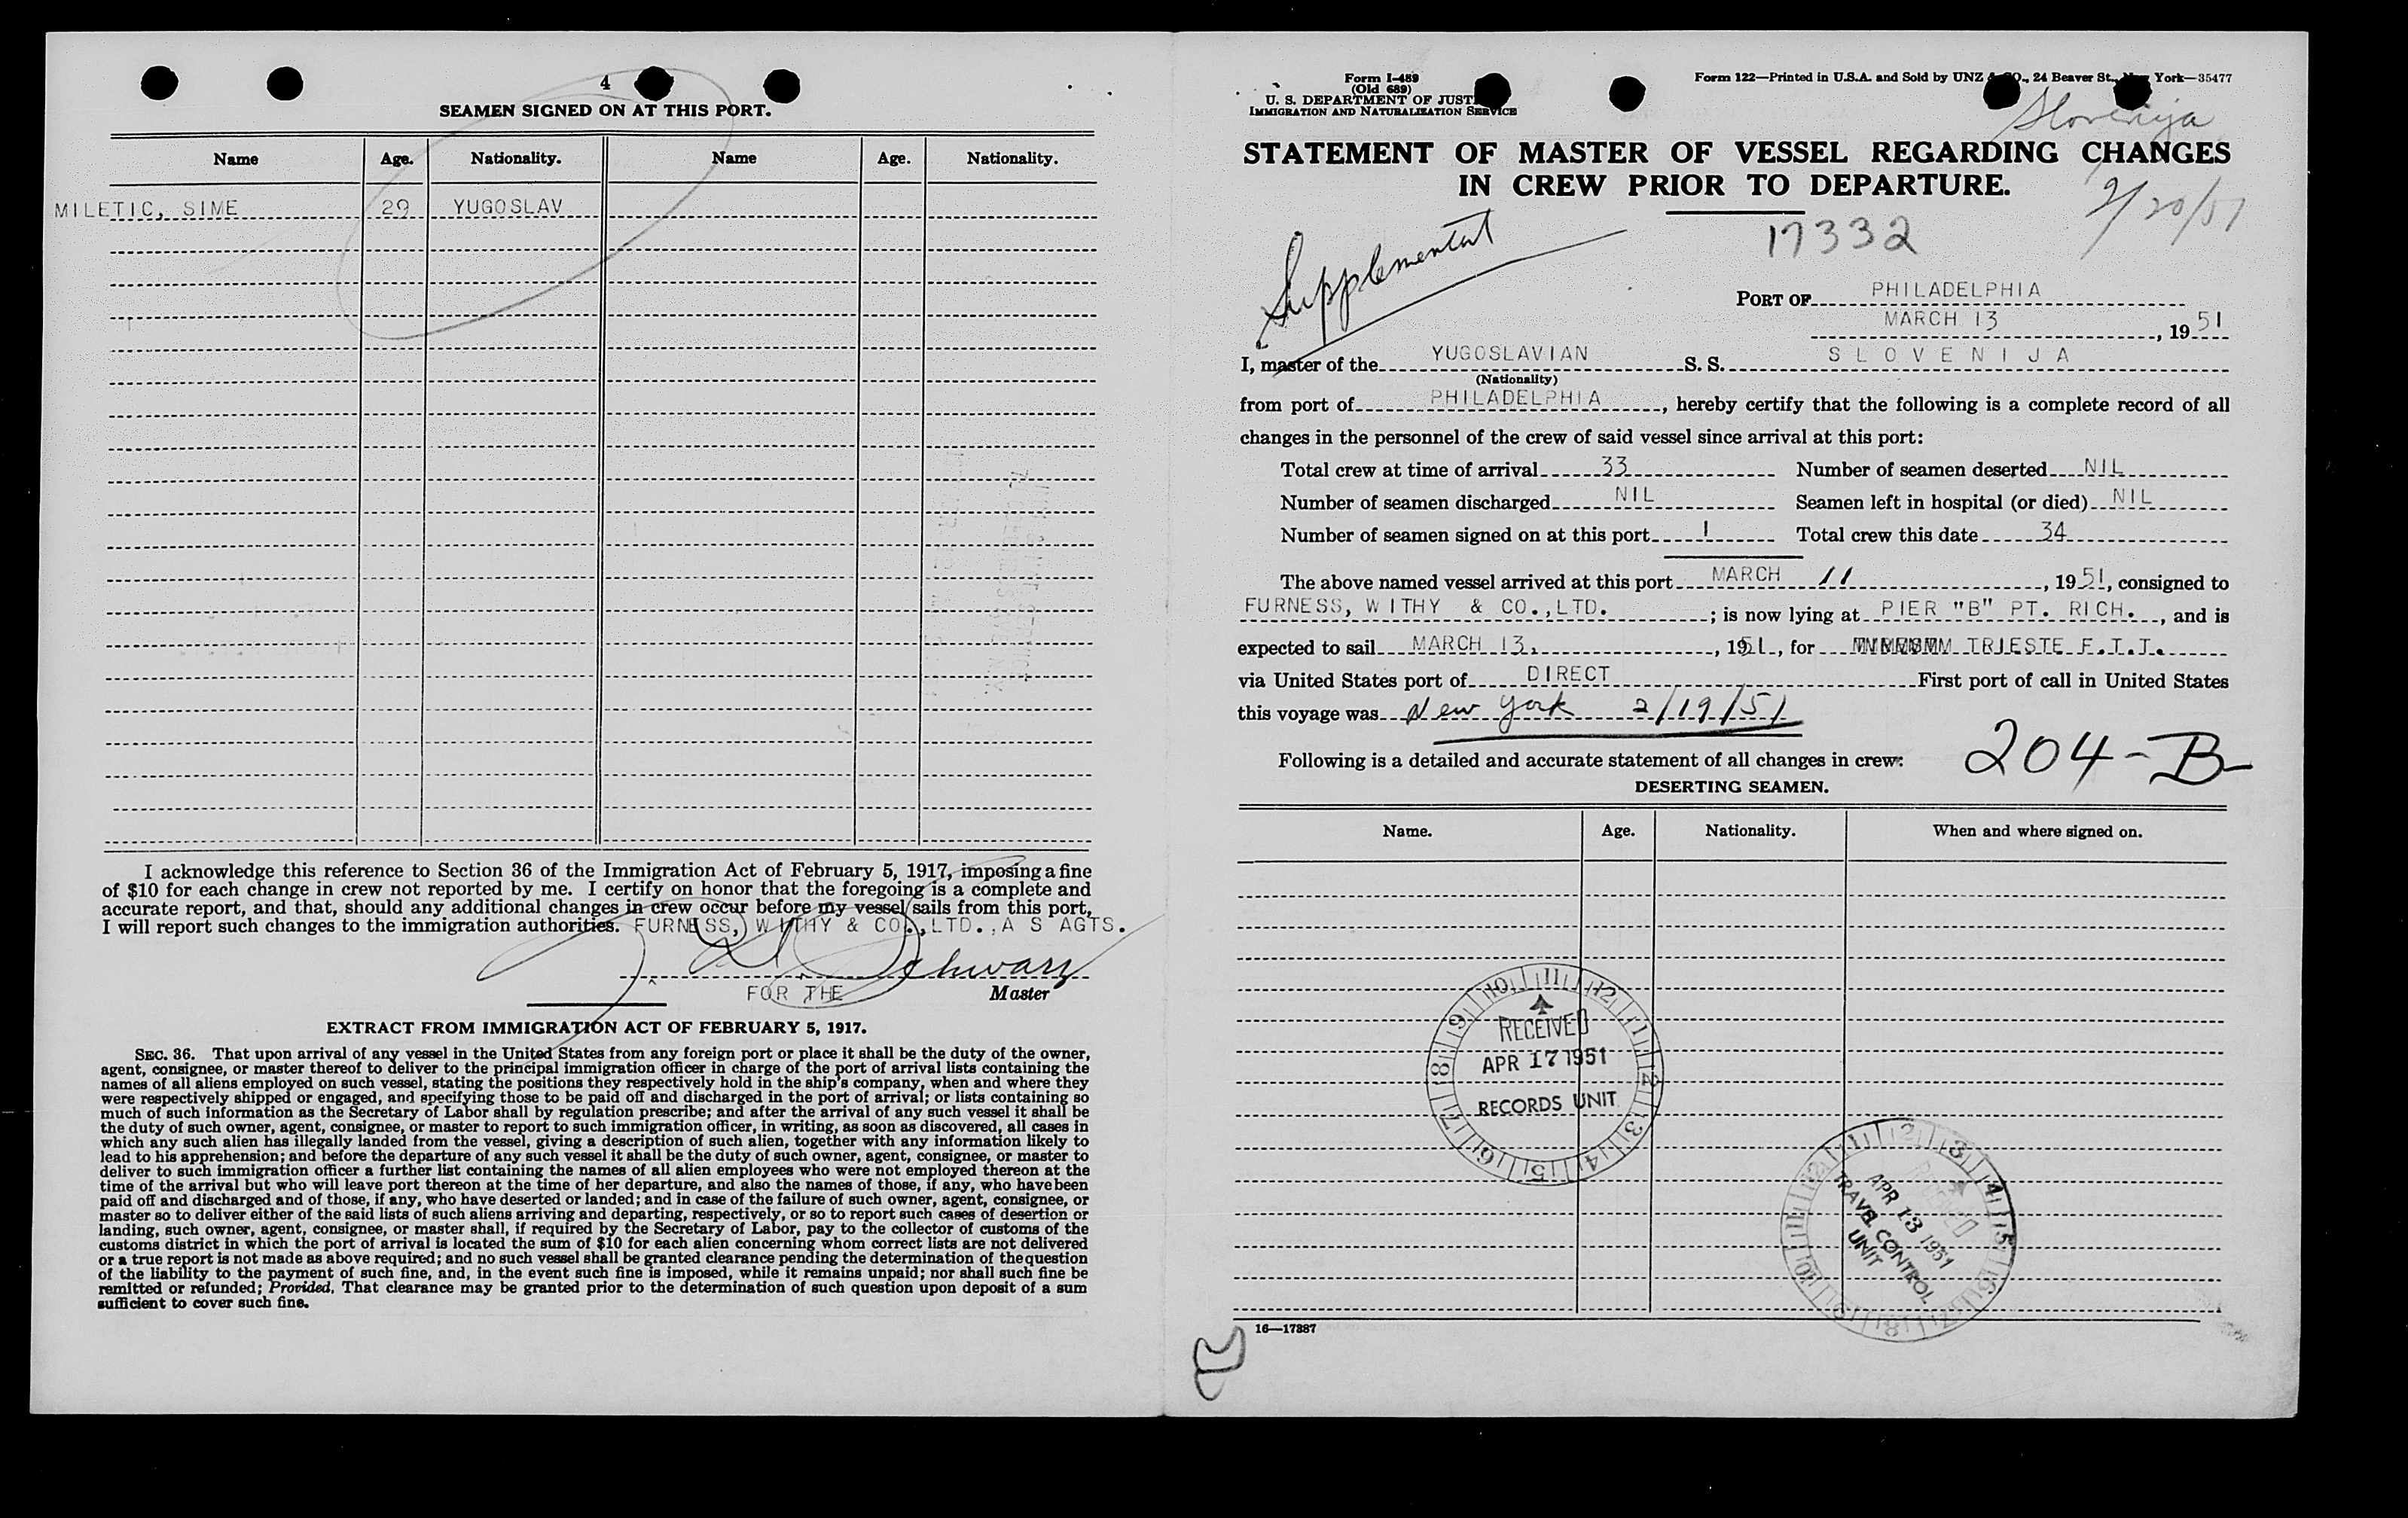 4
SEAMEN SIGNED ON AT THIS PORT.
Name Age. Nationality. Name Age. Nationality.
MILETIC, SIME 29 YUGOSLAV
I acknowledge this reference to Section 36 of the Immigration Act of February 5, 1917, imposing a fine
of $10 for each change in crew not reported by me. I certify on honor that the foregoing is a complete and
accurate report, and that, should any additional changes in crew occur before my vessel sails from this port,
I will report such changes to the immigration authorities. FURNESS, WITHY & CO., LTD., A S AGTS.
Schwarz
FOR THE Master
EXTRACT FROM IMMIGRATION ACT OF FEBRUARY 5, 1917.
SEC. 36. That upon arrival of any vessel in the United States from any foreign port or place it shall be the duty of the owner,
agent, consignee, or master thereof to deliver to the principal immigration officer in charge of the port of arrival lists containing the
names of all aliens employed on such vessel, stating the positions they respectively hold in the ship's company, when and where they
were respectively shipped or engaged, and specifying those to be paid off and discharged in the port of arrival; or lists containing so
much of such information as the Secretary of Labor shall by regulation prescribe; and after the arrival of any such vessel it shall be
the duty of such owner, agent, consignee, or master to report to such immigration officer, in writing, as soon as discovered, all cases in
which any such alien has illegally landed from the vessel, giving a description of such alien, together with any information likely to
lead to his apprehension; and before the departure of any such vessel it shall be the duty of such owner, agent, consignee, or master to
deliver to such immigration officer a further list containing the names of all alien employees who were not employed thereon at the
time of the arrival but who will leave port thereon at the time of her departure, and also the names of those, if any, who have been
paid off and discharged and of those, if any, who have deserted or landed; and in case of the failure of such owner, agent, consignee, or
master so to deliver either of the said lists of such aliens arriving and departing, respectively, or so to report such cases of desertion or
landing, such owner, agent, consignee, or master shall, if required by the Secretary of Labor, pay to the collector of customs of the
customs district in which the port of arrival is located the sum of $10 for each alien concerning whom correct lists are not delivered
or a true report is not made as above required; and no such vessel shall be granted clearance pending the determination of the question
of the liability to the payment of such fine, and, in the event such fine is imposed, while it remains unpaid; nor shall such fine be
remitted or refunded; Provided, That clearance may be granted prior to the determination of such question upon deposit of a sum
sufficient to cover such fine.
Form I-489
(Old 689)
U. S. DEPARTMENT OF JUST
IMMIGRATION AND NATURALIZATION SERVICE
Form 122—Printed in U.S.A. and Sold by UNZ & CO., 24 Beaver St., New York—35477
Slovenija
STATEMENT OF MASTER OF VESSEL REGARDING CHANGES
IN CREW PRIOR TO DEPARTURE.
2/20/51
17332
Supplemental
PORT OF PHILADELPHIA
MARCH 13, 1951
I, master of the YUGOSLAVIAN S. S. SLOVENIJA
(Nationality)
from port of PHILADELPHIA, hereby certify that the following is a complete record of all
changes in the personnel of the crew of said vessel since arrival at this port:
Total crew at time of arrival 33 Number of seamen deserted NIL
Number of seamen discharged NIL Seamen left in hospital (or died) NIL
Number of seamen signed on at this port 1 Total crew this date 34
The above named vessel arrived at this port MARCH 11, 1951, consigned to
FURNESS, WITHY & CO., LTD.; is now lying at PIER "B" PT. RICH., and is
expected to sail MARCH 13, 1951, for TRIESTE F.T.T.
via United States port of DIRECT First port of call in United States
this voyage was New York 2/19/51
Following is a detailed and accurate statement of all changes in crew:
204-B
DESERTING SEAMEN.
Name. Age. Nationality. When and where signed on.
RECEIVED
APR 17 1951
RECORDS UNIT
APR 13 1951
TRAVEL CONTROL
UNIT
16—17887